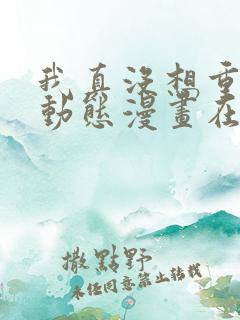 我真沒想重
動態漫畫在
撒點野
未經同意禁止轉載